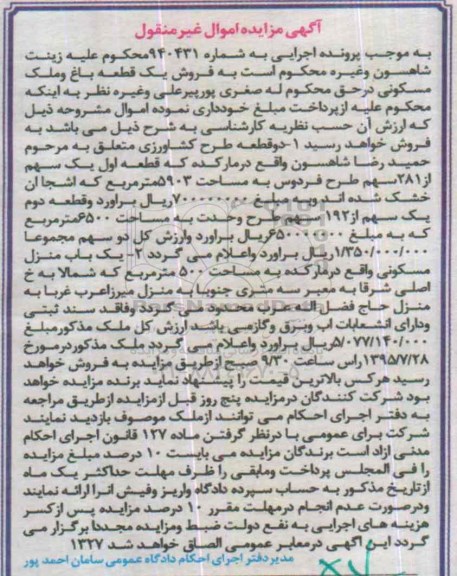 آگهی مزایده اموال غیر منقول
به موجب پرونده اجرایی به شماره ۹۴۰۴۳۱محکوم علیه زینت
شاهسون وغیره محکوم است به فروش یک قطعه باغ وملک
مسکونی درحق محکوم له صغری پورپیرعلی وغیره نظر به اینکه
محکوم علیه ازپرداخت مبلغ خودداری نموده اموال مشروحه ذیل
که ارزش آن حسب نظریه کارشناسی به شرح ذیل می باشد به
فروش خواهد رسید ۱-دوقطعه طرح کشاورزی متعلق به مرحوم
حمید رضا شاهسون واقع درمارکده که قطعه اول یک سهم
از۲۸۱سهم طرح فردوس به مساحت ۵۹۰۳مترمربع که اشجا ان
خشک شده اند وبه مبلغ ۷۰۰۰۰۰۰۰۰ریال براورد وقطعه دوم
یک سهم از۱۹۲ سهم طرح وحدت به مساحت ۶۵۰۰مترمربع
که به مبلغ ۶۵۰۰۰۰۰۰۰ریال براورد وارزش کل دو سهم مجموعا
۱/۳۵۰/۰۰۰/۰۰۰ریال براورد واعلام می گردد ۲- یک باب منزل
مسکونی واقع درمارکده به مساحت ۵۰۰ مترمربع که شمالا به خ
اصلی شرقا به معبر سه متری جنوبا به منزل میرزاعرب غربا به
منزل حاج فضل اله عرب محدود می گردد وفاقد سند ثبتی
ودارای انشعابات اب وبرق وگازمی باشد ارزش کل ملک مذکورمبلغ
۵/۰۷۷/۱۴۰/۰۰۰ریال براورد واعلام می گردد ملک مذکوردرمورخ
۱۳۹۵/۷/۲۸راس ساعت ۹/۳۰ صبح ازطریق مزایده به فروش خواهد
رسید هرکس بالاترین قیمت را پیشنهاد نماید برنده مزایده خواهد
بود شرکت کنندگان درمزایده پنج روز قبل ازمزایده ازطریق مراجعه
به دفتر اجرای احکام می توانند ازملک موصوف بازدید نمایند
شرکت برای عمومی با درنظر گرفتن ماده ۱۲۷ قانون اجرای احکام
مدنی ازاد است برندگان مزایده می بایست ۱۰ درصد مبلغ مزایده
را فی المجلس پرداخت ومابقی را ظرف مهلت حداکثر یک ماه
ازتاریخ مذکور به حساب سپرده دادگاه واریز وفیش انرا ارائه نمایند
ودرصورت عدم انجام درمهلت مقرر ۱۰ درصد مزایده پس ازکسر
هزینه های اجرایی به نفع دولت ضبط ومزایده مجددا برگزار می
گردد این آگهی درمعابر عمومی الصاق خواهد شد ۱۳۲۷
مدیردفتر اجرای احکام دادگاه عمومی سامان احمد پور